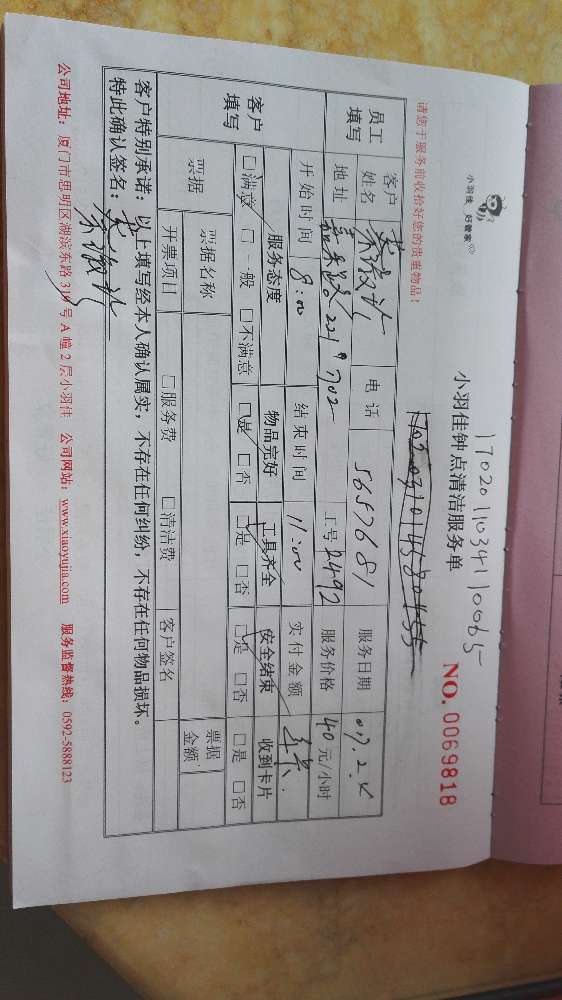 小羽佳 好管家®
小羽佳钟点清洁服务单
NO. 0069818
1702011034110065
请您于服务前收拾好您的贵重物品!
员工填写
客户姓名 电话 5657681 服务日期
地址 工号 2492 服务价格 40元/小时
开始时间 8:00 结束时间 11:00 实付金额
客户填写
服务态度 物品完好 工具齐全 安全结束 收到卡片
□满意 □一般 □不满意 □是 □否 □是 □否 □是 □否 □是 □否
票据 票据名称 票据金额
开票项目 □服务费 □清洁费 客户签名
客户特别承诺:以上填写经本人确认属实,不存在任何纠纷,不存在任何物品损坏。
特此确认签名:
公司地址:厦门市思明区湖滨东路319号A幢2层小羽佳 公司网站:www.xiaoyujia.com 服务监督热线:0592-5888123